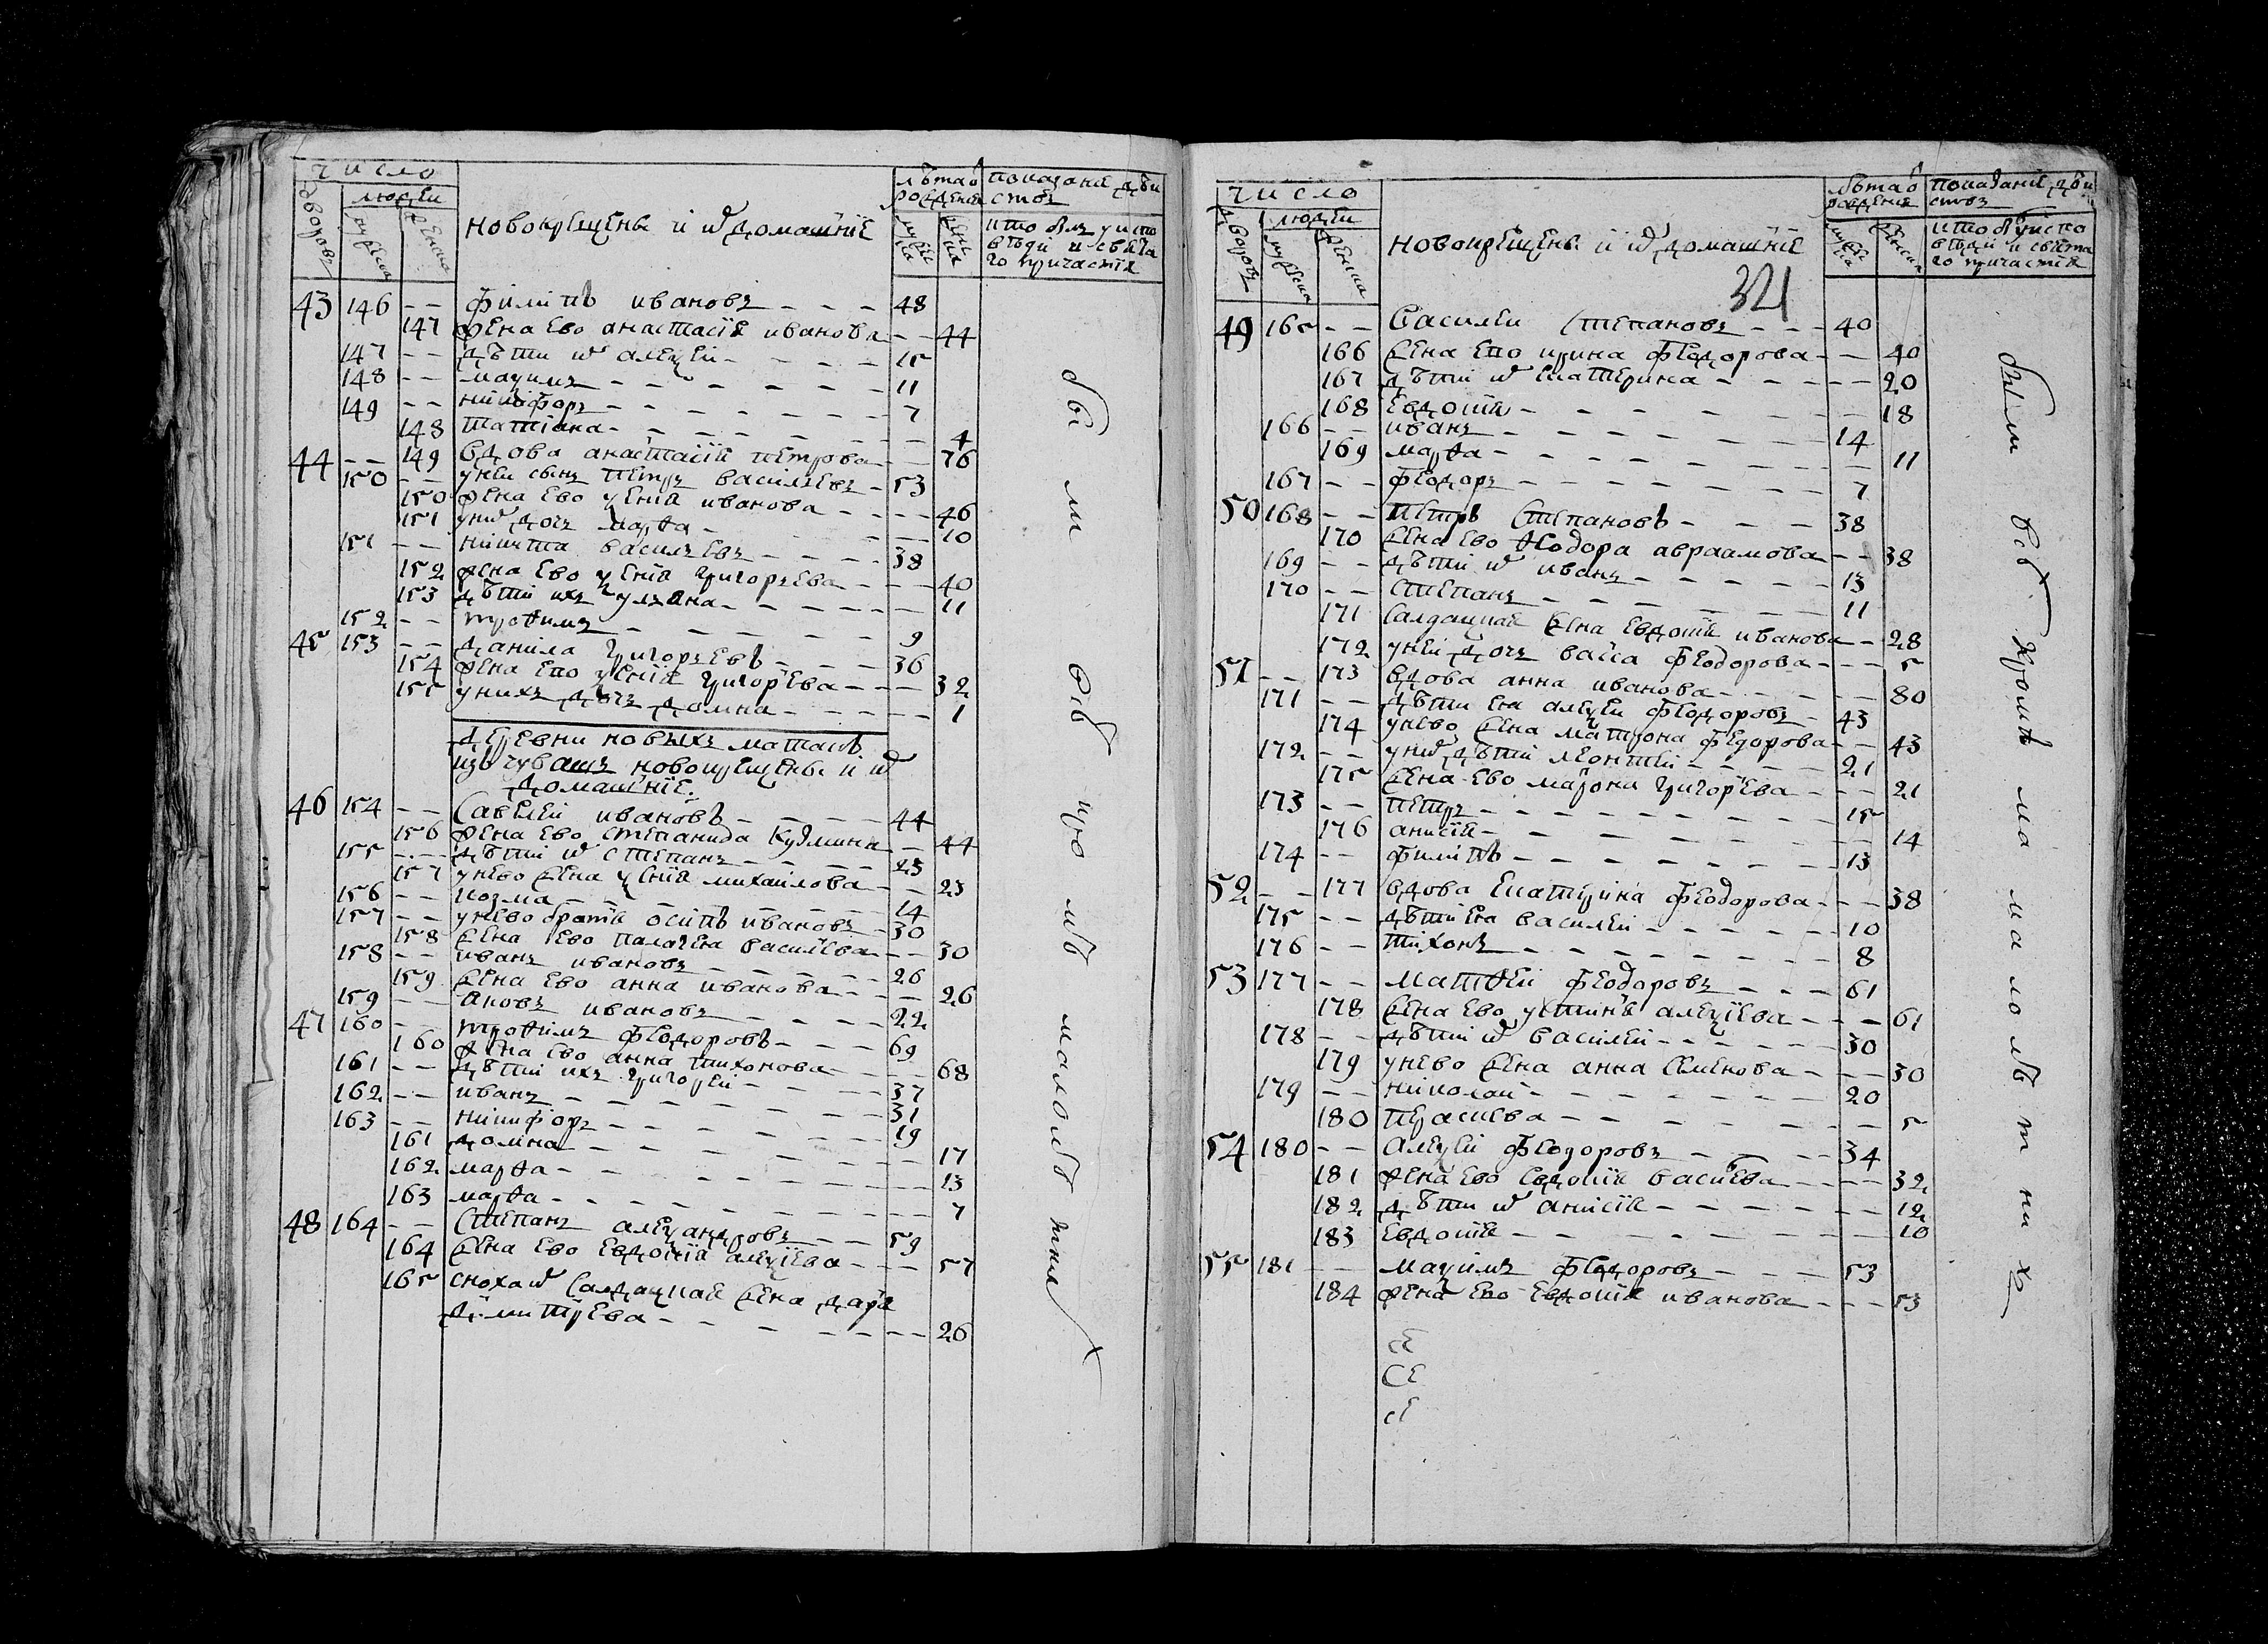 число
людеи
дворовъ
мужеска
женска
новокрещены и их домашние
лѣта о рождения
мужеска
женска
показание действ
кто был у испо
веди и свята
го причастия
43 146 -- филипъ ивановъ - - - 48
147 жена ево анастасия иванова - - 44
147 -- дѣти их алексеи - - - - 15
148 -- максимъ - - - - - - 11
149 -- никифоръ - - - - - - 7
148 татиана - - - - - - - 4
44 -- 149 вдова анастасия петрова - - 76
150 -- у неи сынъ петръ василъевъ - 53
150 жена ево ксения иванова - - - - 46
151 у них дочь марфа - - - 10
151 -- никита василъевъ - - - - 38
152 жена ево ксения григоръева - - - - 40
153 дѣти ихъ улъяна - - - - - - 11
152 -- трофимъ - - - - - - 9
45 153 -- данила григоръевъ - - - - 36
154 жена ево ксения григорьева - - - - 32
155 у нихъ дочь домна - - - - - 1
деревни новыхъ матакъ
изъ чувашъ новокрещены и их
домашние.
46 154 -- савелеи ивановъ - - - - 44
156 жена ево степанида кузмина - - 44
155 -- дѣти их степанъ - - - - 23
157 у нево жена ксения михаилова - - 23
156 -- козма - - - - - - 14
157 -- у нево братья осипъ ивановъ - 30
158 жена ево палагея василиева - - 30
158 -- иванъ ивановъ - - - - - 26
159 жена ево анна иванова - - - - 26
159 -- яковъ ивановъ - - - - - 22
47 160 -- трофимъ феодоровъ - - - 69
160 жена ево анна тихонова - - - - 68
161 -- дѣти ихъ григореи - - - - 37
162 -- иванъ - - - - - - - 31
163 -- никифоръ - - - - - - 19
161 домна - - - - - - - 17
162 марфа - - - - - - - 13
163 марфа - - - - - - - 7
48 164 -- степанъ александровъ - - - 59
164 жена ево евдокия алексиева - - - 57
165 сноха их салдацкая жена даря
димитриева - - - - - - - 26
были все кроме малолѣтних
число
людеи
дворовъ
мужеска
женска
новокрещены и их домашние
321
лѣта о рождения
мужеска
женска
показание действ
кто был у испо
веди и свята
го причастия
49 165 -- василеи степановъ - - - 40
166 жена ево ирина феодорова - - 40
167 дѣти их екатерина - - - - - 20
168 евдокия - - - - - - - 18
166 -- иванъ - - - - - - - 14
169 марфа - - - - - - - 11
167 -- феодоръ - - - - - - 7
50 168 -- петръ степановъ - - - - 38
170 жена ево феодора авраамова - - 38
169 -- дѣти их иванъ - - - - - 13
170 -- степанъ - - - - - - 11
171 салдацкая жена евдокия иванова - 28
172 у неи дочь васса феодорова - - - 5
51 -- 173 вдова анна иванова - - - - - 80
171 -- дѣти ея алексеи феодоровъ - 43
174 у нево жена матрона федорова - - 43
172 -- у них дѣти леонтеи - - - - 21
175 жена ево матрона григорьева - - - 21
173 -- петръ - - - - - - - 15
176 анисия - - - - - - - 14
174 -- филипъ - - - - - - - 13
52 -- 177 вдова екатерина феодорова - - - 38
175 -- дѣти ея василеи - - - - - 10
176 -- тихонъ - - - - - - - 8
53 177 -- матфеи феодоровъ - - - 61
178 жена ево устиния алексиева - - - 61
178 -- дѣти их василеи - - - - - 30
179 у нево жена анна семенова - - - 30
179 -- николаи - - - - - - 20
180 прасковя - - - - - - - 5
54 180 -- алексеи феодоровъ - - - - 34
181 жена ево евдокия васиева - - - - 32
182 дѣти их анисия - - - - - - 12
183 евдокия - - - - - - - - 10
55 181 -- максимъ феодоровъ - - - 53
184 жена ево евдокия иванова - - - 53
были все кроме малолѣтних